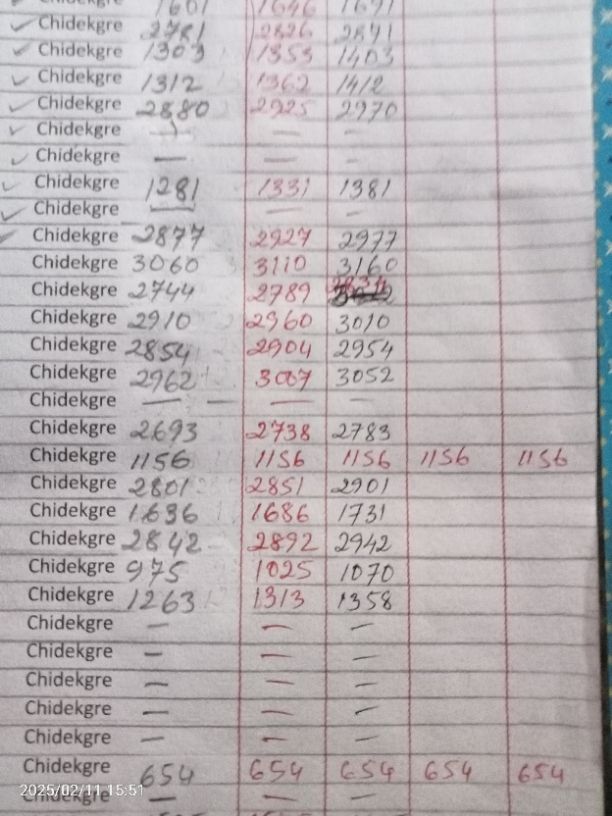 Chidekgre 1601 1646 1691
Chidekgre 2781 2826 2871
Chidekgre 1303 1353 1403
Chidekgre 1312 1362 1412
Chidekgre 2880 2925 2970
Chidekgre — — —
Chidekgre — — —
Chidekgre 1281 1331 1381
Chidekgre — — —
Chidekgre 2877 2927 2977
Chidekgre 3060 3110 3160
Chidekgre 2744 2789 2834
Chidekgre 2910 2960 3010
Chidekgre 2854 2904 2954
Chidekgre 2962 3007 3052
Chidekgre — — —
Chidekgre 2693 2738 2783
Chidekgre 1156 1156 1156 1156 1156
Chidekgre 2801 2851 2901
Chidekgre 1636 1686 1731
Chidekgre 2842 2892 2942
Chidekgre 975 1025 1070
Chidekgre 1263 1313 1358
Chidekgre — — —
Chidekgre — — —
Chidekgre — — —
Chidekgre — — —
Chidekgre — — —
Chidekgre 654 654 654 654 654
2025/02/11 15:51
Chidekgre — — —